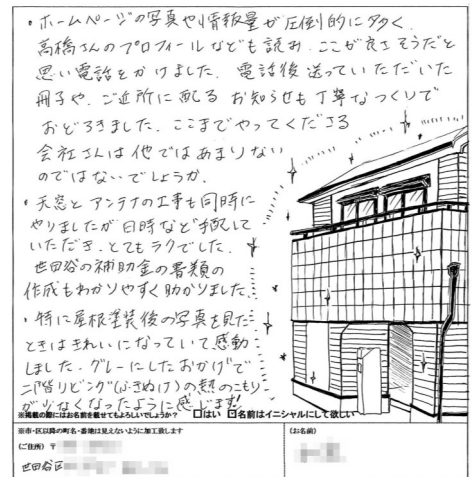 ・ホームページの写真や情報量が圧倒的に多く、
高橋さんのプロフィールなども読み、ここが良さそうだと
思い電話をかけました。電話後送っていただいた
冊子や、ご近所に配るお知らせも丁寧なつくりで
おどろきました。ここまでやってくださる
会社さんは他ではあまりない
のではないでしょうか。
・天窓とアンテナの工事も同時に
やりましたが日時など手配して
いただき、とてもラクでした。
世田谷の補助金の書類の
作成もわかりやすく助かりました。
・特に屋根塗装後の写真を見た
ときはきれいになっていて感動
しました。グレーにしたおかげで
二階リビング(ふきぬけ)の熱のこもり
が少なくなったように感じます!
※掲載の際にはお名前を載せてもよろしいでしょうか? □はい ☑名前はイニシャルにして欲しい
※市・区以降の町名・番地は見えないように加工致します
(ご住所) 〒
(お名前)
世田谷区